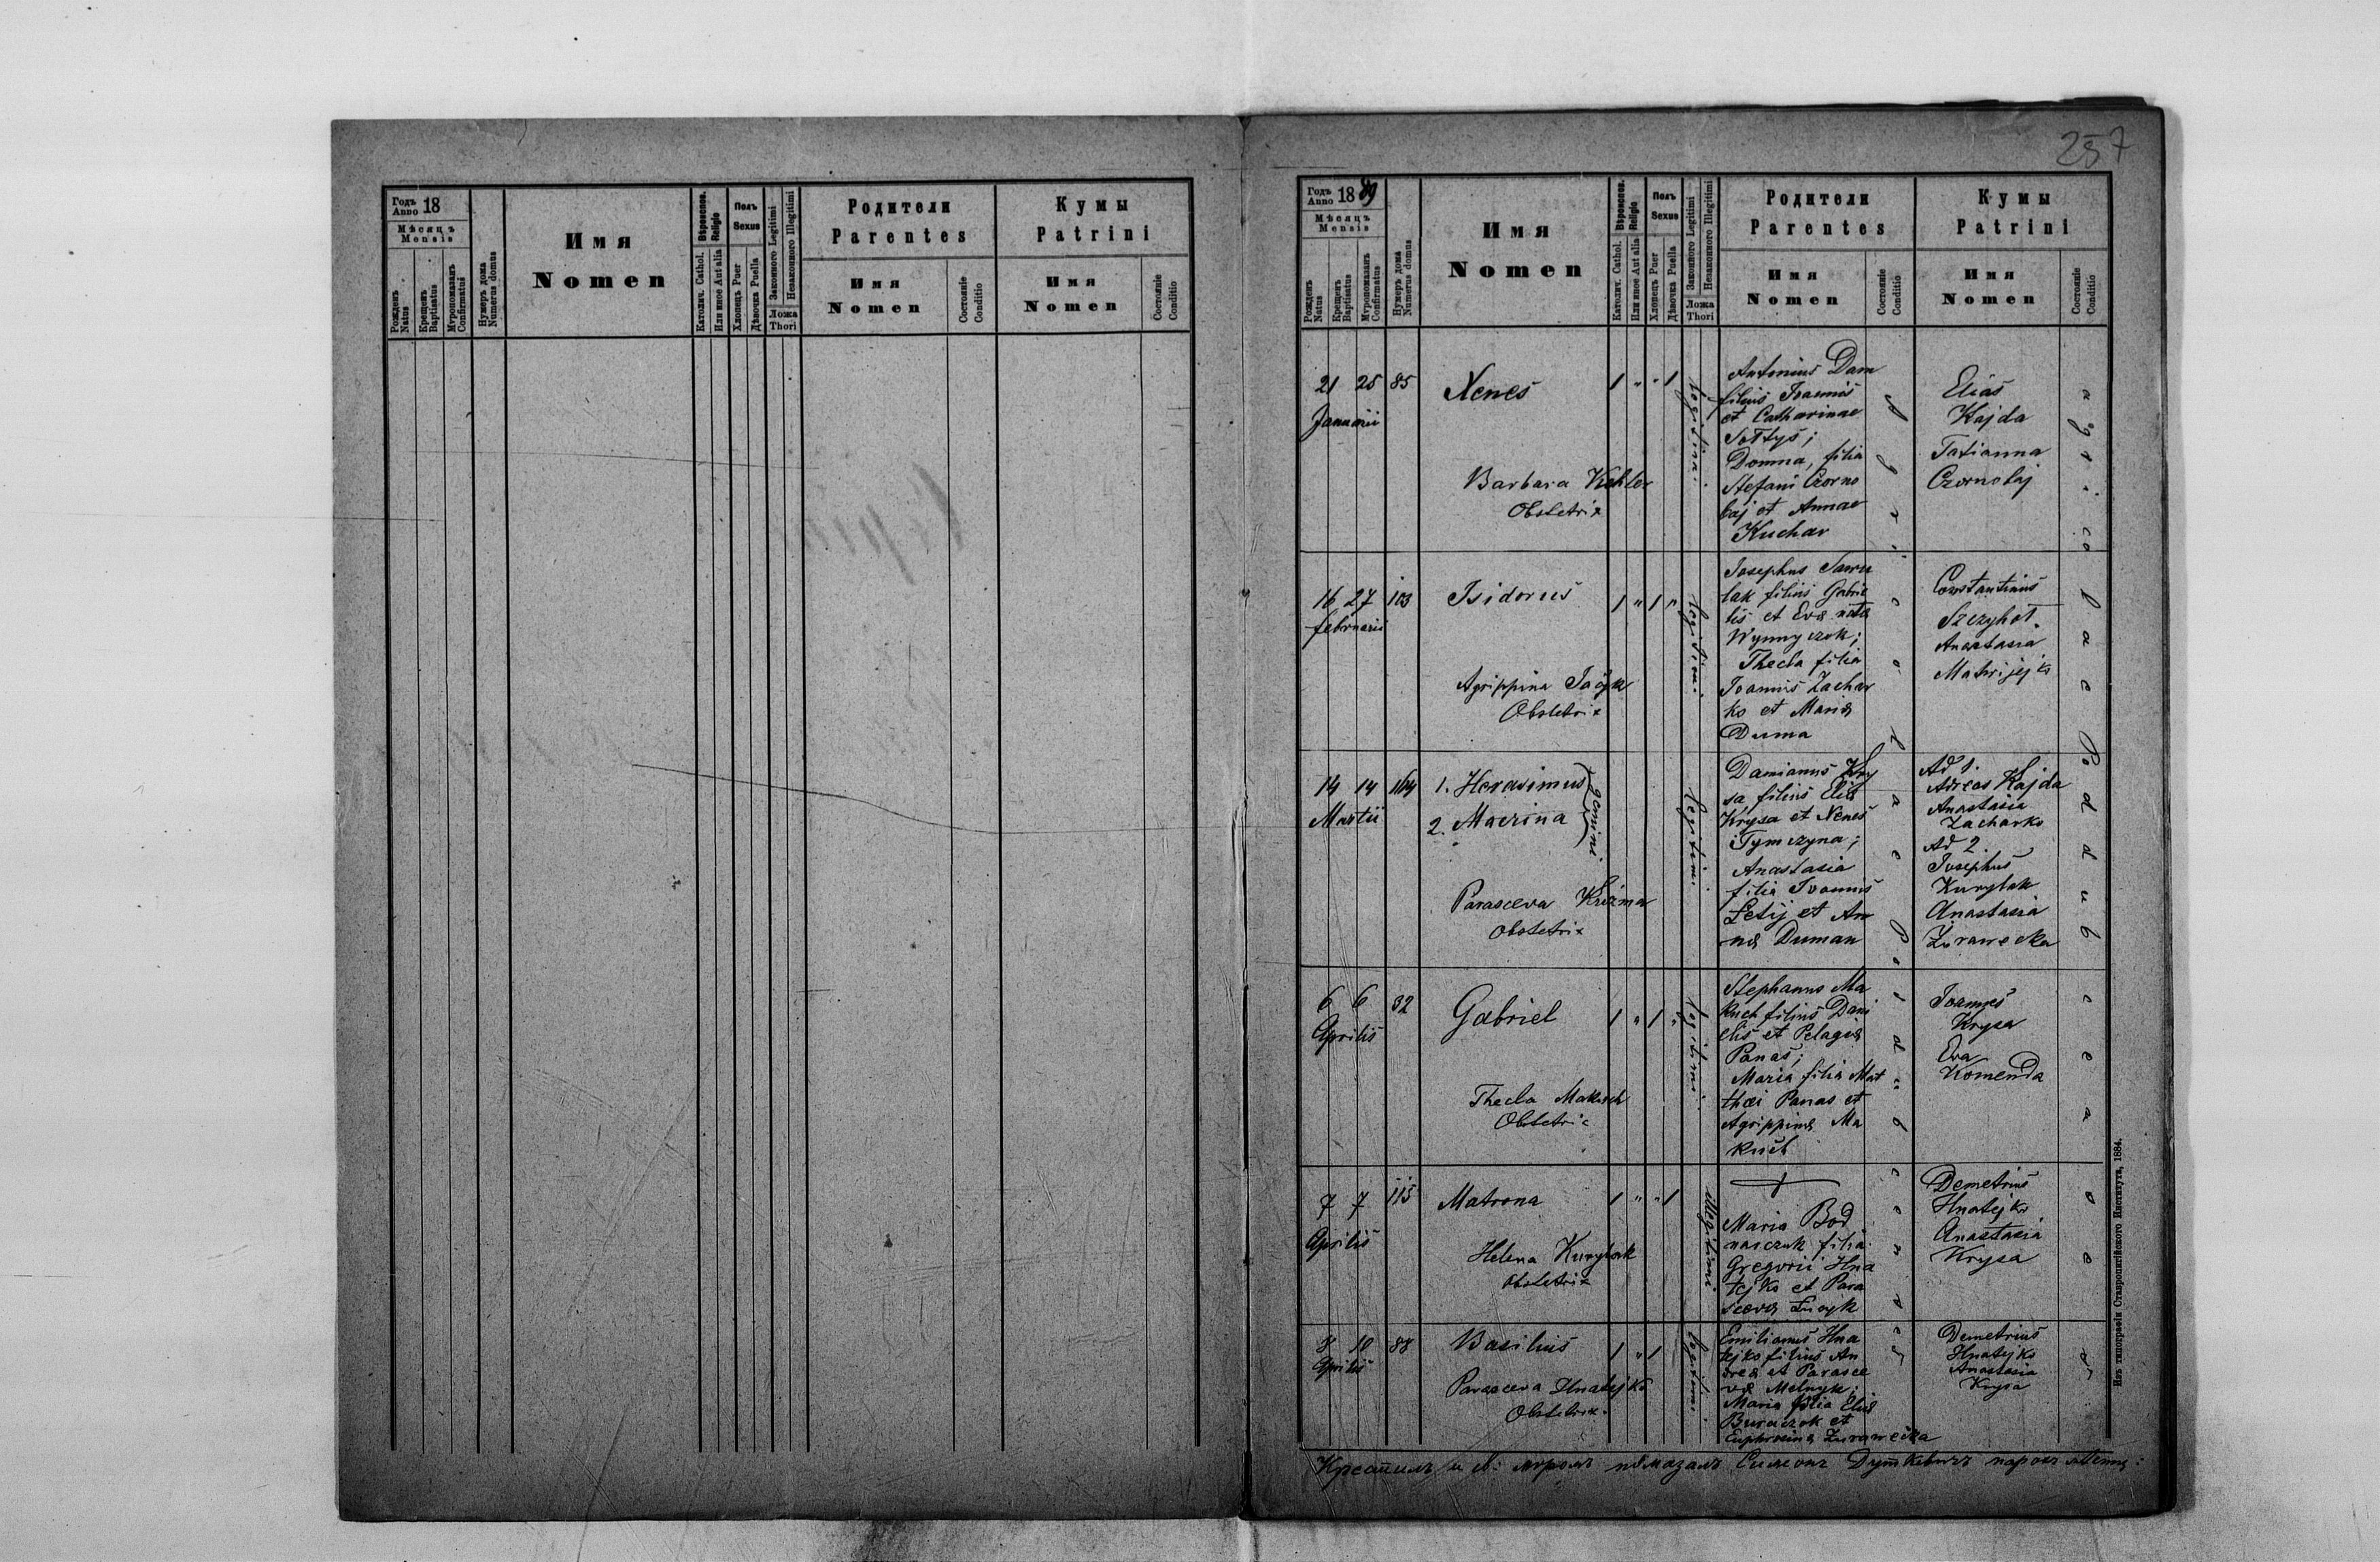 Годъ Anno 18
Мѣсяцъ
Mensis
Рожденъ Natus
Крещенъ Baptisatus
Мѵропомазанъ Confirmatus
Нумеръ дома Numerus domus
Имя
Nomen
Вѣроиспов. Religio
Католич. Cathol.
Или иное Aut alia
Полъ
Sexus
Хлопецъ Puer
Дѣвочка Puella
Законного Legitimi
Незаконного Illegitimi
Ложа
Thori
Родители
Parentes
Имя
Nomen
Состояніе Conditio
Кумы
Patrini
Имя
Nomen
Состояніе Conditio
257
Годъ Anno 1889
Мѣсяцъ
Mensis
Рожденъ Natus
Крещенъ Baptisatus
Мѵропомазанъ Confirmatus
Нумеръ дома Numerus domus
Имя
Nomen
Вѣроиспов. Religio
Католич. Cathol.
Или иное Aut alia
Полъ
Sexus
Хлопецъ Puer
Дѣвочка Puella
Законного Legitimi
Незаконного Illegitimi
Ложа
Thori
Родители
Parentes
Имя
Nomen
Состояніе Conditio
Кумы
Patrini
Имя
Nomen
Состояніе Conditio
21 25 85
Januarii
Xenes
Barbara Kohler
Obstetrix
1 " " 1
legitimi
Antonius Dam
filius Joannis
et Catharinae
Sołtys;
Domna, filia
Stefani Czorno
baj et Annae
Kuchar
Elias
Kajda
Tatianna
Czornobaj
16 27 103
februarii
Isidorus
Agrippina
Obstetrix
1 " 1 "
legitimi
Josephus Sawu
lak filius Gabrie
lis et Evæ natæ
Wynnyczok;
Thecla filia
Joannis Zachar
ko et Mariæ
Duma
Constantinus
Szczyhot
Anastasia
Matwijejko
14 14 164
Martii
1. Herasimus
2. Macrina
gemini
Parasceva Krizmar
Obstetrix
legitimi
Damianus Kry
sa, filius Eliæ
Krysa et Xenes
Tymczyna;
Anastasia
filia Joannis
Letij et An
næ Duman
Ad 1.
Adreas Kajda
Anastasia
Zacharko
Ad 2
Josephus
Kurylak
Anastasia
Żurawecka
6 6 32
Aprilis
Gabriel
Thecla Makuch
Obstetrix
1 " 1 "
legitimi
Stephanus Ma
kuch filius Dani
elis et Pelagiæ
Panas;
Maria filia Mat
thæi Panas et
Agrippinæ Ma
kuch
Joannes
Krysa
Eva
Komenda
7 7 115
Aprilis
Matrona
Helena Kurylak
Obstetrix
1 " " 1
illegitimi
Maria Bod
narczuk filia
Gregorii Hna
tejko et Para
scevæ
Demetrius
Hnatejko
Anastasia
Krysa
8 10 88
Aprilis
Basilius
Parasceva Hnatejko
Obstetrix
1 " 1
legitimi
Emilianus Hna
tejko filius An
dreæ et Parasce
væ Melnyk;
Maria filia Eliæ
Buraczok et
Euphrosinæ Zurawecka
Demetrius
Hnatejko
Anastasia
Krysa
agricolae Poddubce
agricolae Poddubce
Крестилъ и св: мѵромъ помазалъ Симеонъ Дуткевичъ парохъ
Изъ типографіи Ставропигійского Института, 1884.